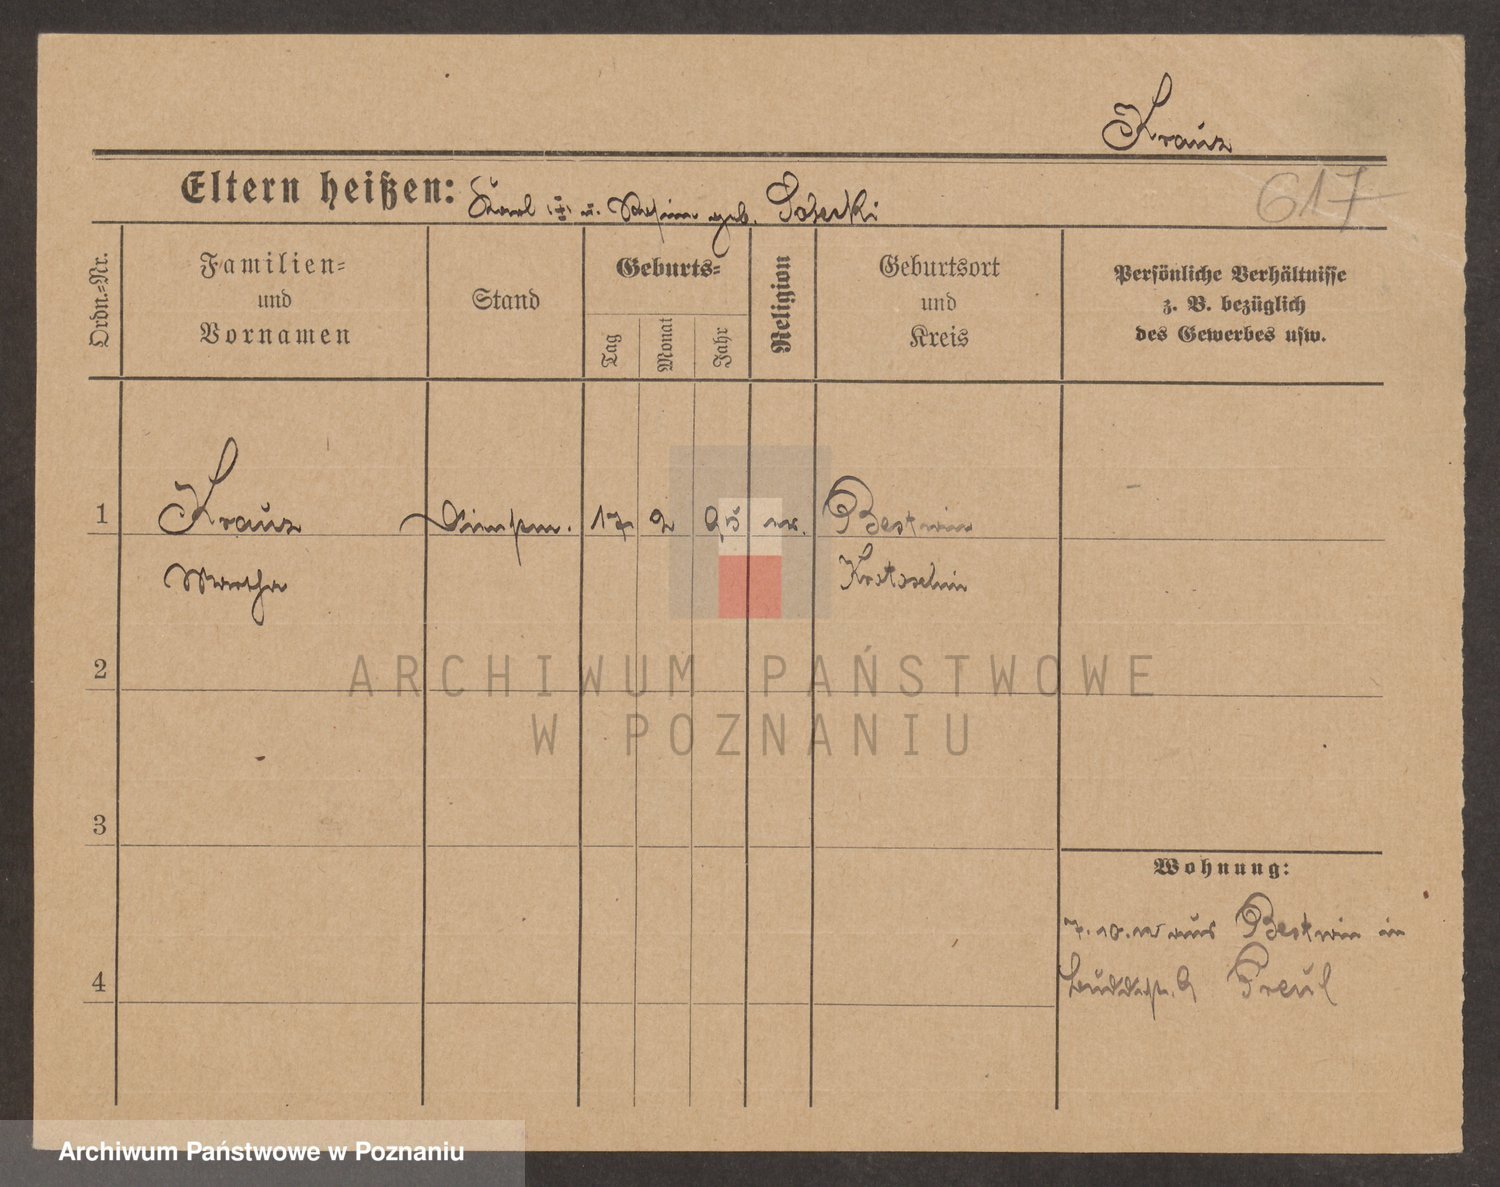 Krauz
617
Eltern heißen: Karl u. geb.
Ordn.=Nr.
Familien=
und
Vornamen
Stand
Geburts=
Tag
Monat
Jahr
Religion
Geburtsort
und
Kreis
Persönliche Verhältnisse
z. B. bezüglich
des Gewerbes usw.
1 Krauz 17 2 95 Bestwin
Martha Krotoschin
2
3
4
Wohnung:
7.10.12 aus Bestwin in
9 Preul
ARCHIWUM PAŃSTWOWE
W POZNANIU
Archiwum Państwowe w Poznaniu